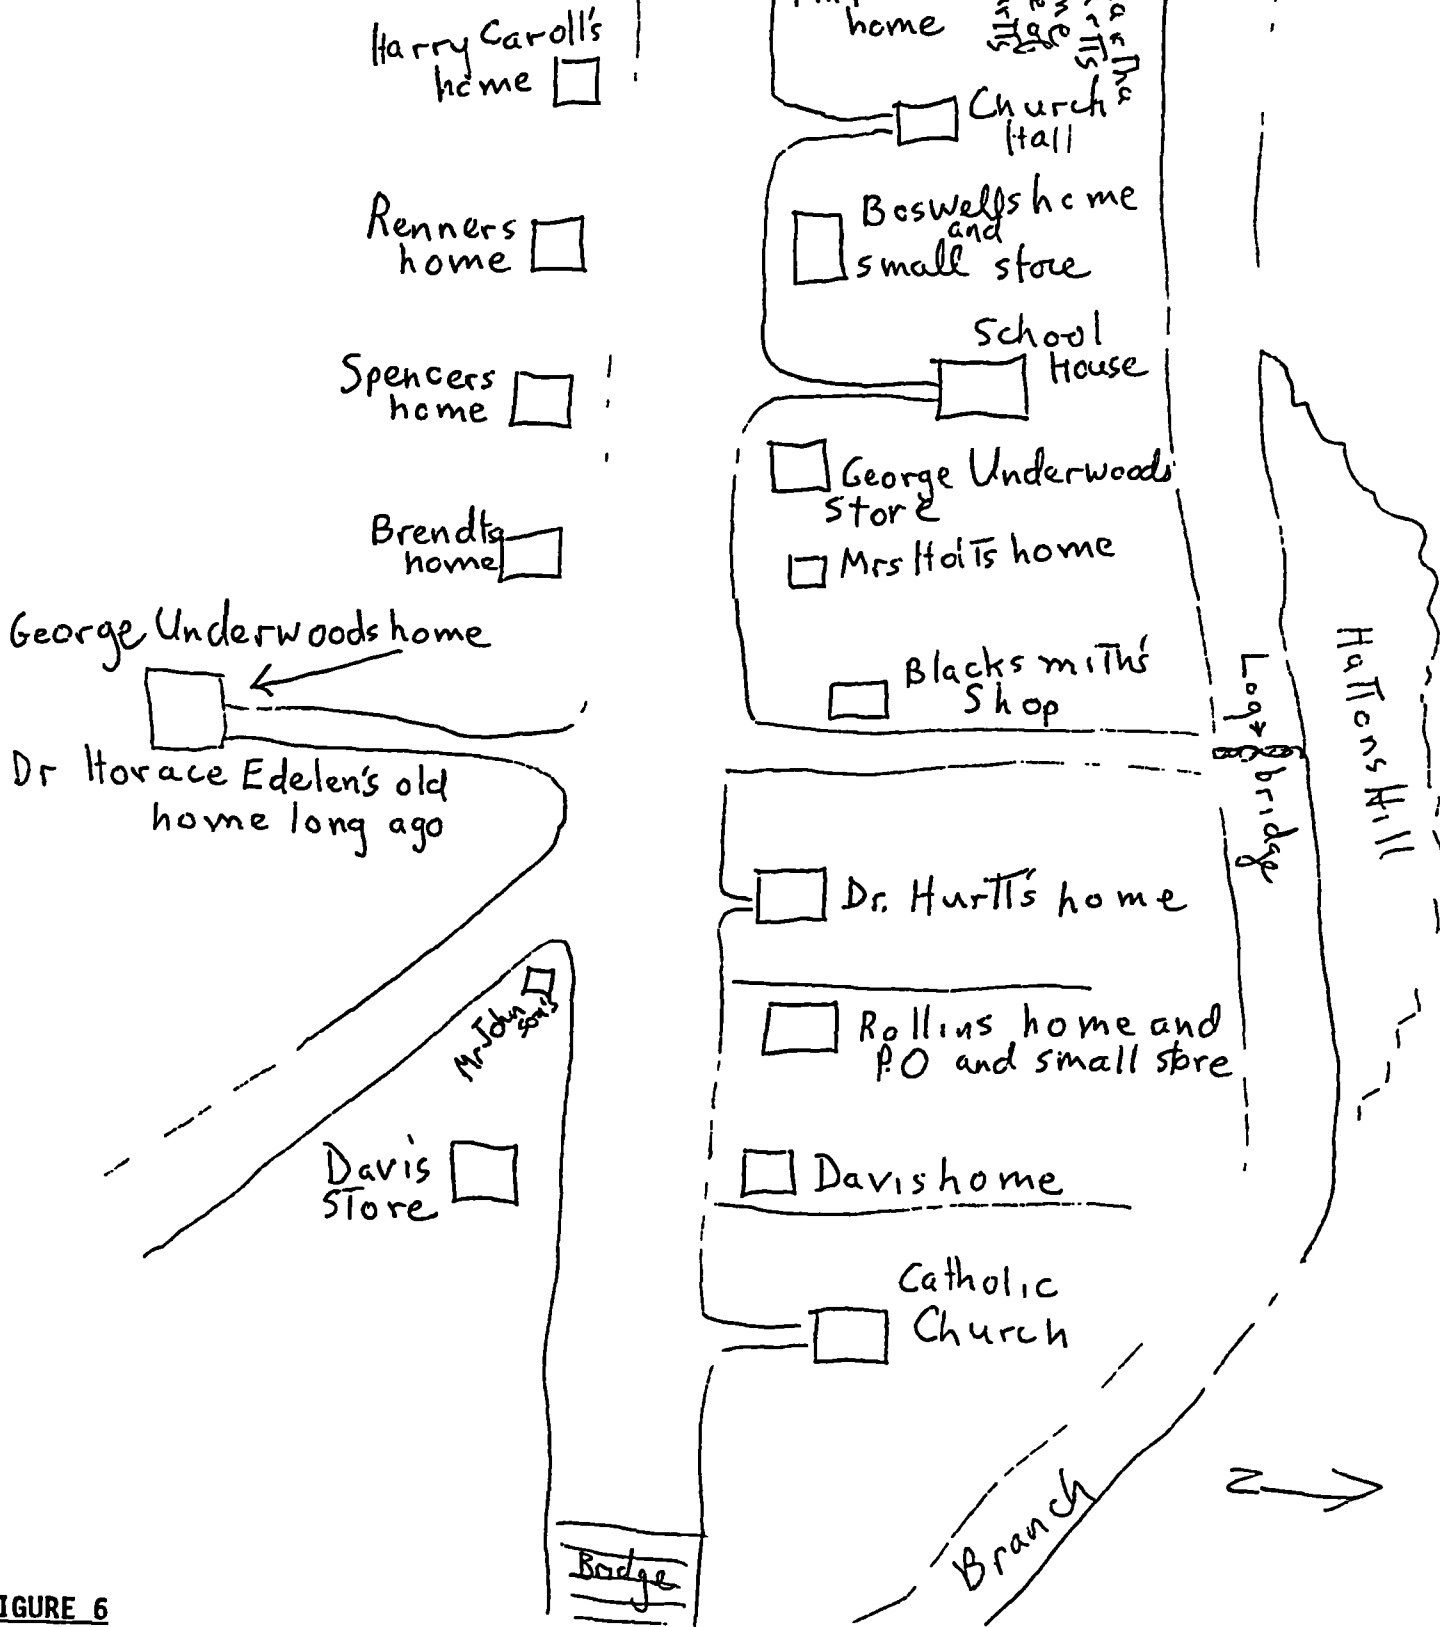 Harry Caroll's
home
home
Church
Hall
Renners
home
Boswells home
and
small store
School
House
Spencers
home
George Underwoods
store
Brendts
home
Mrs Holts home
George Underwoods home
Blacksmith's
Shop
Log
bridge
Hattons Hill
Dr Horace Edelen's old
home long ago
Dr. Hurtt's home
Mr John
son's
Rollins home and
P.O and small store
Davis
Store
Davis home
Catholic
Church
N
Branch
Bridge
IGURE 6